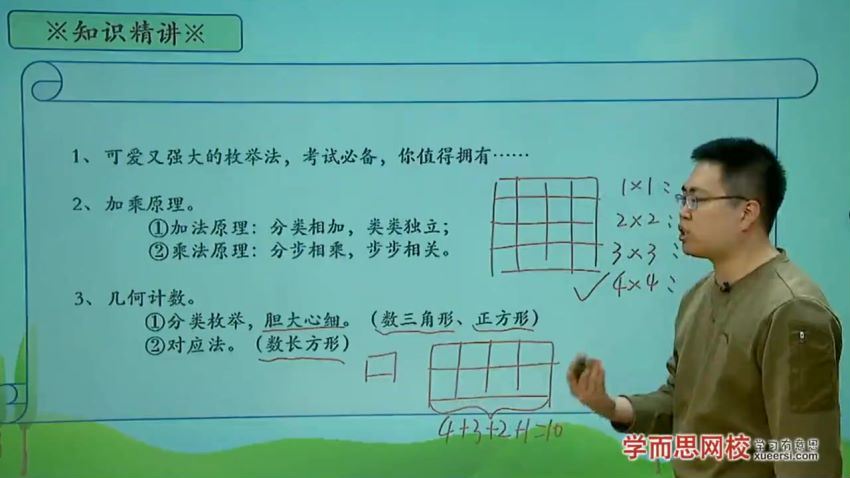 ※知识精讲※
1、可爱又强大的枚举法，考试必备，你值得拥有……
2、加乘原理。
①加法原理：分类相加，类类独立；
②乘法原理：分步相乘，步步相关。
3、几何计数。
①分类枚举，胆大心细。（数三角形、正方形）
②对应法。（数长方形）
1×1：
2×2：
3×3：
✓4×4：
4+3+2+1=10
学而思网校 学习有意思
xueersi.com